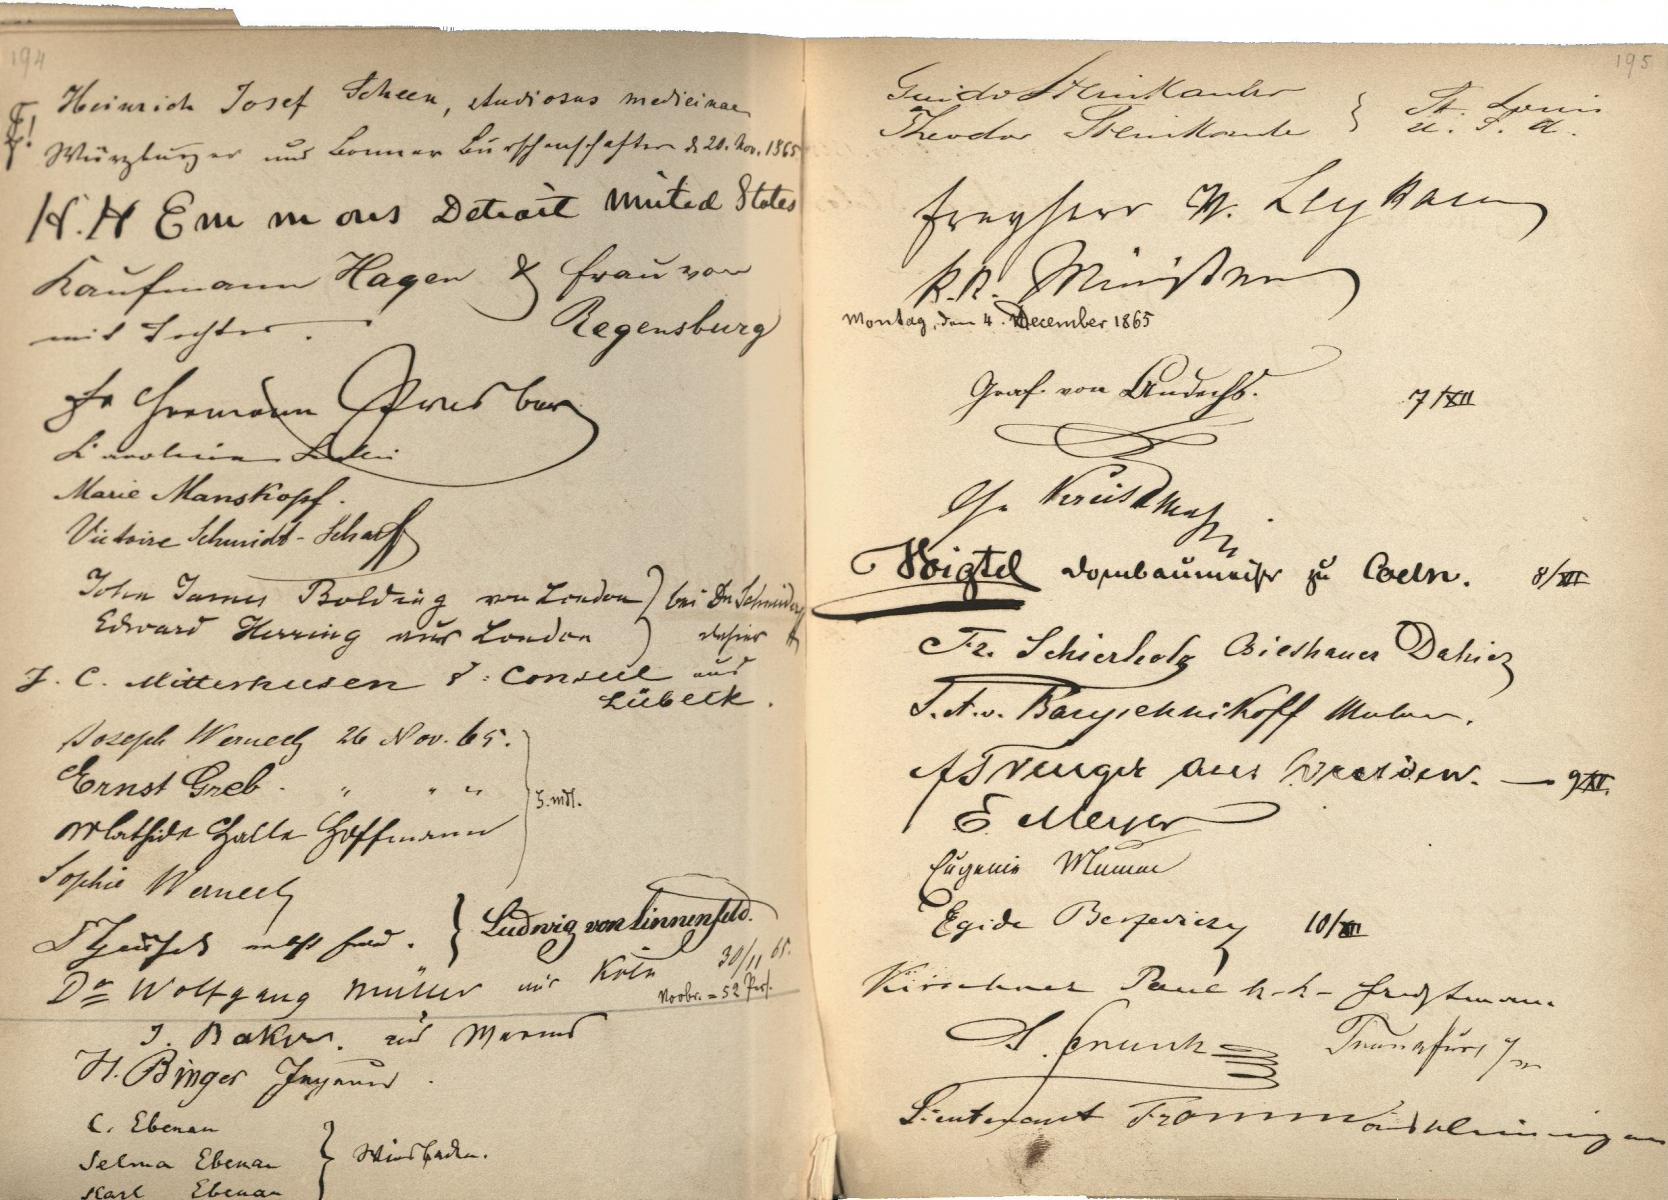 194
Heinrich Josef Scheen, studiosus medicinae
Würzburger und Bonner Burschenschafter d. 20. Nov. 1865
H. H Emmons Detroit United States
Kaufmann Hagen & Frau von
Regensburg
mit Tochter.
Dr Hermann
Marie Manskopf.
Victoire Schmidt-Scharff
John James Bolding von London
Edward Herring aus London
bei Dr Schmidt
dahier
J. C. Mitterhusen d: Consul aus
Lübeck.
Joseph Werneck 26 Nov. 65.
Ernst Greb. " " "
Mathilde Halle Hoffmann
Sophie Werneck
Ludwig von Linnenfeld.
Dr Wolfgang Müller aus Köln 30/11 65.
Novbr. = 52 Pers.
J. Baker. aus
H. Binger Ingenieur.
C. Ebenau
Selma Ebenau
Karl Ebenau
Wiesbaden.
195
Guido Steinkauler
Theodor Steinkauler
St. Louis
U. S. A.
Freyherr W. Leykam
K. K. Minister
Montag, den 4. December 1865
Graf von Andechs. 7/XII
Voigtel Dombaumeister zu Coeln. 8/XII
Fr. Schierholz Bildhauer Dahier
Maler.
aus Dresden. — 9/XII.
E. Meyer
Eugenie Mumm
Egide Berzeviczy 10/XII
Kirschner Paul k. k.
Frankfurt a/m
Lieutenant Fromm aus Meiningen